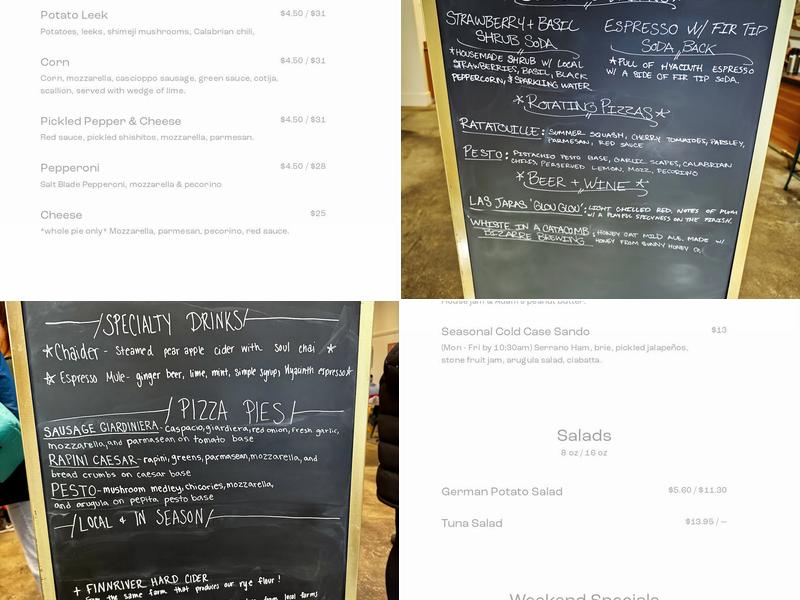 Potato Leek $4.50 / $31
Potatoes, leeks, shimeji mushrooms, Calabrian chili,
Corn $4.50 / $31
Corn, mozzarella, cascioppo sausage, green sauce, cotija,
scallion, served with wedge of lime.
Pickled Pepper & Cheese $4.50 / $31
Red sauce, pickled shishitos, mozzarella, parmesan.
Pepperoni $4.50 / $28
Salt Blade Pepperoni, mozzarella & pecorino
Cheese $25
*whole pie only* Mozzarella, parmesan, pecorino, red sauce.
STRAWBERRY + BASIL
SHRUB SODA
*HOUSEMADE SHRUB W/ LOCAL
STRAWBERRIES, BASIL, BLACK
PEPPERCORN, & SPARKLING WATER
ESPRESSO W/ FIR TIP
SODA BACK
*PULL OF HYACINTH ESPRESSO
W/ A SIDE OF FIR TIP SODA.
*ROTATING PIZZAS*
RATATOUILLE: SUMMER SQUASH, CHERRY TOMATOES, PARSLEY,
PARMESAN, RED SAUCE
PESTO: PISTACHIO PESTO BASE, GARLIC SCAPES, CALABRIAN
CHILIS, PERSERVED LEMON, MOZZ, PECORINO
*BEER + WINE*
LAS JARAS 'GLOU GLOU': LIGHT CHILLED RED, NOTES OF PLUM
W/ A PLAYFUL SPICYNESS ON THE FINISH.
'WHISTE IN A CATACOMB: HONEY OAT MILD ALE. MADE W/
BIZARRE BREWING HONEY FROM SUNNY HONEY CO.
SPECIALTY DRINKS
*Chaider - Steamed pear apple cider with soul chai *
* Espresso Mule - ginger beer, lime, mint, simple syrup, Hyacinth espresso*
PIZZA PIES
SAUSAGE GIARDINIERA - Caspacio, giardiera, red onion, fresh garlic,
mozzarella, and parmasean on tomato base
RAPINI CAESAR - rapini, greens, parmasean, mozzarella, and
bread crumbs on caesar base
PESTO - mushroom medley, chicories, mozzarella,
and arugula on pepita pesto base
LOCAL & IN SEASON
+ FINNRIVER HARD CIDER
From the same farm that produces our rye flour!
from local farms
House jam & Adam's peanut butter.
Seasonal Cold Case Sando $13
(Mon - Fri by 10:30am) Serrano Ham, brie, pickled jalapeños,
stone fruit jam, arugula salad, ciabatta.
Salads
8 oz / 16 oz
German Potato Salad $5.60 / $11.30
Tuna Salad $13.95 / —
Weekend Specials